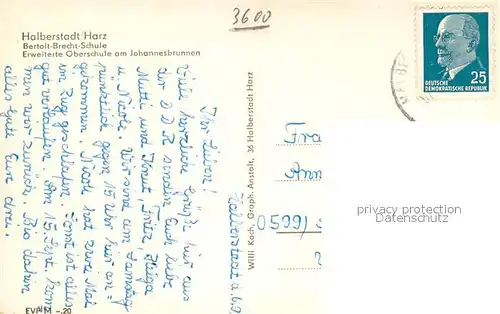 3600
Halberstadt Harz
Bertolt-Brecht-Schule
Erweiterte Oberschule am Johannesbrunnen
25
DEUTSCHE
DEMOKRATISCHE REPUBLIK
Halberstadt, d. 6.9.
Ihr Lieben!
Viele herzliche Grüße hier aus
der DDR senden Euch liebe
Mutti und Horst, Fritz, Helga
u. Nicole. Wir sind am Samstag
pünktlich gegen 15 Uhr hier an=
gekommen. Nicole hat zwei Mal
im Zug geschlafen. Sonst ist alles
gut verlaufen. Am 15. Sept. kom
men wir zurück. Bis dahin
alles Gute Eure drei.
Willi Koch, Graph. Anstalt, 36 Halberstadt Harz
Fra
Ann
0599)
EVP M -.20
privacy protection
Datenschutz